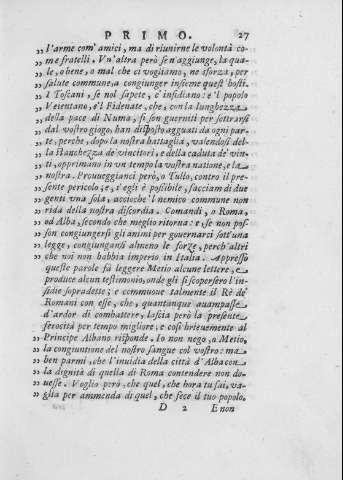 PRIMO. 27
„ l'arme com' amici, ma di riunirne le volontà co-
„ me fratelli. Vn'altra però se n'aggiunge, la qua-
„ le, o bene, o mal che ci vogliamo, ne sforza, per
„ salute commune, a congiunger insieme quest' hosti.
„ I Toscani, se nol sapete, c'insidiano: e'l popolo
„ Veientano, e'l Fidenate, che, con la lunghezza
„ della pace di Numa, si son guerniti per sottrarsi
„ dal vostro giogo, han disposto agguati da ogni par-
„ te; perche, dopo la nostra battaglia, valendosi del-
„ la stanchezza de'vincitori, e della caduta de'vin-
„ ti, opprimano in vn tempo la vostra natione, e la
„ nostra. Prouueggianci però, o Tullo, contro il pre-
„ sente pericolo; e, s'egli è possibile, facciam di due
„ genti vna sola, accioche l nemico commune non
„ rida della nostra discordia. Comandi, o Roma,
„ od Alba, secondo che meglio ritorna: e, se non pos-
„ son congiungersi gli animi per gouernarci sott'una
„ legge, congiungansi almeno le forze, perch'altri
„ che noi non habbia imperio in Italia. Appresso
queste parole fà leggere Metio alcune lettere, e
produce alcun testimonio, onde gli si scopersero l'in-
sidie sopradette; e commuoue talmente il Rè de'
Romani con esse, che, quantunque auampasse
d'ardor di combattere, lascia però la presente
ferocità per tempo migliore, e così brieuemente al
„ Principe Albano risponde. Io non nego, o Metio,
„ la congiuntione del nostro sangue col vostro: ma
„ ben parmi, che l'inuidia della città d'Alba con
„ la dignità di quella di Roma contendere non do-
„ uesse. Voglio però, che quel, che hora tu fai, va-
„ glia per ammenda di quel, che fece il tuo popolo.
D 2 E non